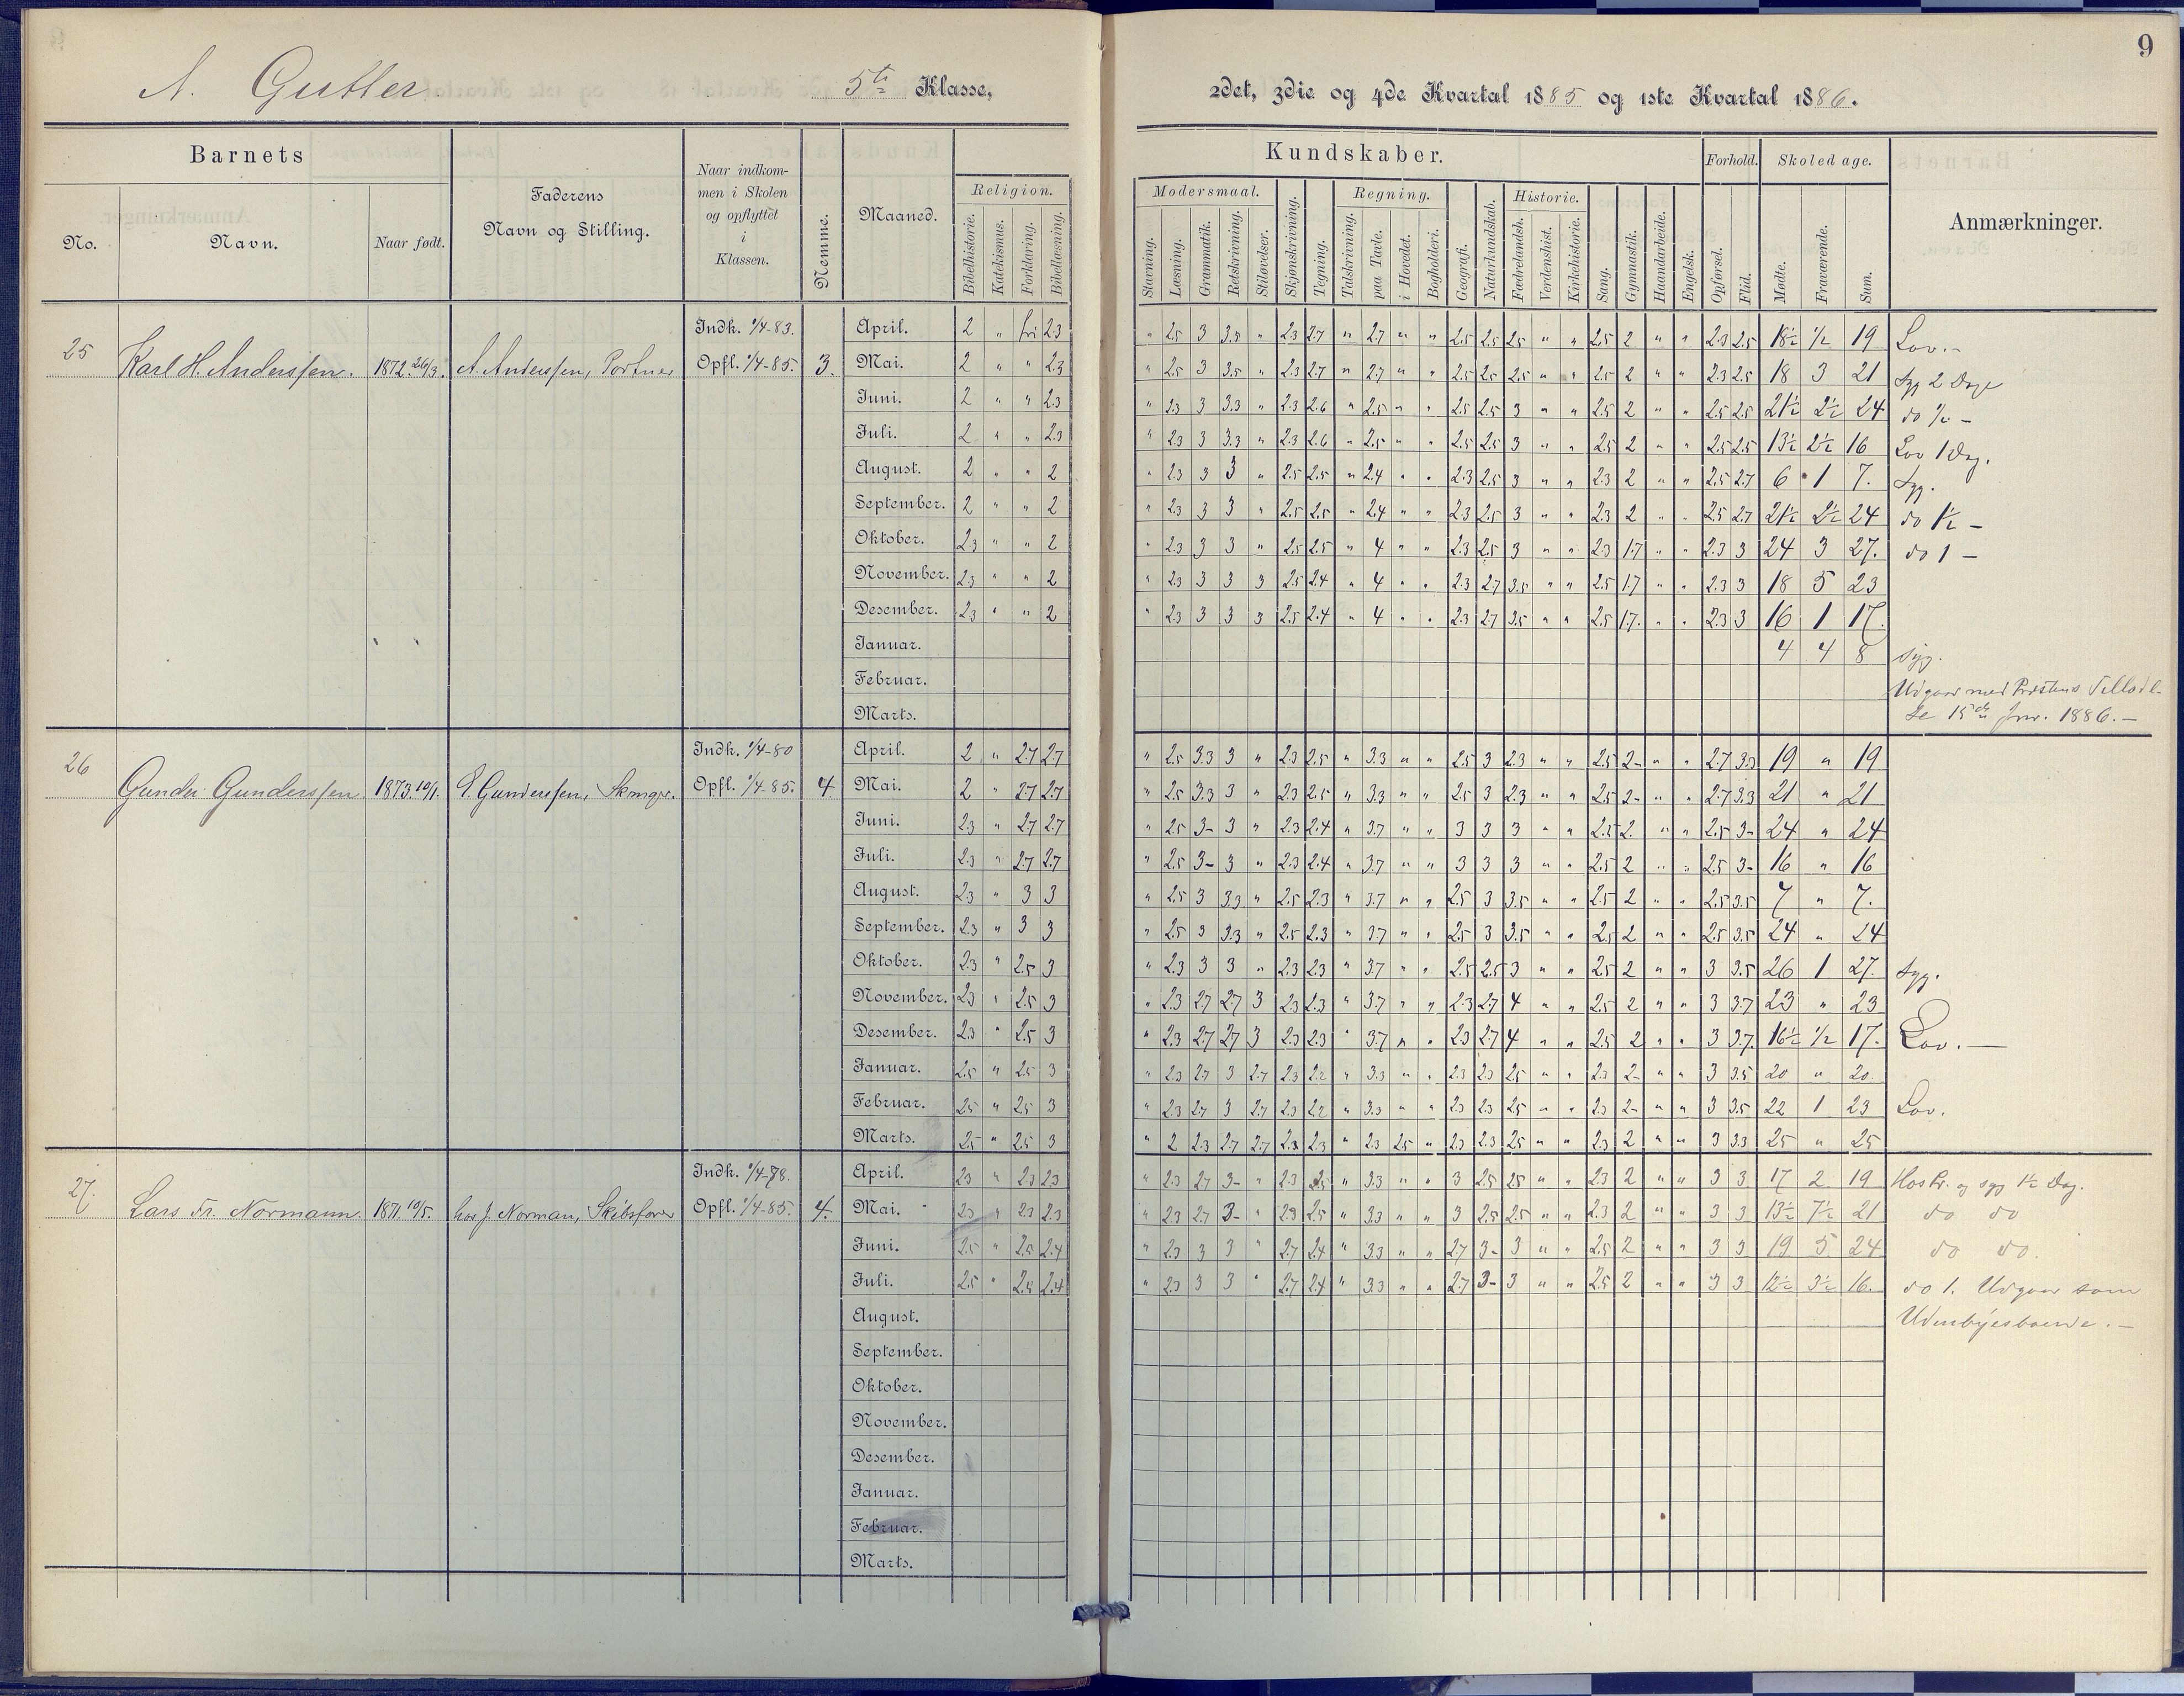 9
A. Gutter. 5te Klasse,
2det, 3die og 4de Kvartal 1885 og 1ste Kvartal 1886.
Barnets
No.
Navn.
Naar født.
Faderens
Navn og Stilling.
Naar indkom-
men i Skolen
og opflyttet
i
Klassen.
Nemme.
Maaned.
Kundskaber.
Religion.
Bibelhistorie. Katekismus. Forklaring. Bibellæsning.
Modersmaal.
Stavning. Læsning. Grammatik. Retskrivning. Stiløvelser.
Skjønskrivning. Tegning.
Regning.
Talskrivning. paa Tavle. i Hovedet. Bogholderi.
Geografi. Naturkundskab.
Historie.
Fædrelandsh. Verdenshist. Kirkehistorie.
Sang. Gymnastik. Haandarbeide. Engelsk.
Forhold.
Opførsel. Flid.
Skoledage.
Mødte. Fraværende. Sum.
Anmærkninger.
25 Karl H. Anderssen. 1872 26/3. A. Anderssen, Portner Indk. 1/4-83. Opfl. 1/4-85. 3.
April. 2 " fri 2.3 " 2.5 3 3.5 " 2.3 2.7 " 2.7 " " 2.5 2.5 2.5 " " 2.5 2 " " 2.3 2.5 18½ ½ 19 Lov.-
Mai. 2 " " 2.3 " 2.5 3 3.5 " 2.3 2.7 " 2.7 " " 2.5 2.5 2.5 " " 2.5 2 " " 2.3 2.5 18 3 21 Syg 2 Dage
Juni. 2 " " 2.3 " 2.3 3 3.3 " 2.3 2.6 " 2.5 " " 2.5 2.5 3 " " 2.5 2 " " 2.5 2.5 21½ 2½ 24 do ½ -
Juli. 2 " " 2.3 " 2.3 3 3.3 " 2.3 2.6 " 2.5 " " 2.5 2.5 3 " " 2.5 2 " " 2.5 2.5 13½ 2½ 16 Lov 1 Dag.
August. 2 " " 2 " 2.3 3 3 " 2.5 2.5 " 2.4 " " 2.3 2.5 3 " " 2.3 2 " " 2.5 2.7 6 1 7. Syg.
September. 2 " " 2 " 2.3 3 3 " 2.5 2.5 " 2.4 " " 2.3 2.5 3 " " 2.3 2 " " 2.5 2.7 21½ 2½ 24 do 1½ -
Oktober. 2.3 " " 2 " 2.3 3 3 " 2.5 2.5 " 4 " " 2.3 2.5 3 " " 2.3 1.7 " " 2.3 3 24 3 27. do 1 -
November. 2.3 " " 2 " 2.3 3 3 3 2.5 2.4 " 4 " " 2.3 2.7 3.5 " " 2.5 1.7 " " 2.3 3 18 5 23
Desember. 2.3 " " 2 " 2.3 3 3 3 2.5 2.4 " 4 " " 2.3 2.7 3.5 " " 2.5 1.7. " " 2.3 3 16 1 17.
Januar. 4 4 8 syg.
Februar. Udgaar med Præstens Tillodel-
Marts. se 15de Jnr. 1886.-
26 Gunder Gunderssen. 1873. 10/1. Gunderssen, Skmgr. Indk. 1/4-80 Opfl. 1/4-85. 4.
April. 2 " 2.7 2.7 " 2.5 3.3 3 " 2.3 2.5 " 3.3 " " 2.5 3 2.3 " " 2.5 2- " " 2.7 3.3 19 " 19
Mai. 2 " 2.7 2.7 " 2.5 3.3 3 " 2.3 2.5 " 3.3 " " 2.5 3 2.3 " " 2.5 2- " " 2.7 3.3 21 " 21
Juni. 2.3 " 2.7 2.7 " 2.5 3- 3 " 2.3 2.4 " 3.7 " " 3 3 3 " " 2.5 2. " " 2.5 3- 24 " 24
Juli. 2.3 " 2.7 2.7 " 2.5 3- 3 " 2.3 2.4 " 3.7 " " 3 3 3 " " 2.5 2 " " 2.5 3- 16 " 16
August. 2.3 " 3 3 " 2.5 3 3.3 " 2.5 2.3 " 3.7 " " 2.5 3 3.5 " " 2.5 2 " " 2.5 3.5 7 " 7.
September. 2.3 " 3 3 " 2.5 3 3.3 " 2.5 2.3 " 3.7 " " 2.5 3 3.5 " " 2.5 2 " " 2.5 3.5 24 " 24
Oktober. 2.3 " 2.5 3 " 2.3 3 3 " 2.3 2.3 " 3.7 " " 2.5 2.5 3 " " 2.5 2 " " 3 3.5 26 1 27. Syg.
November. 2.3 " 2.5 3 " 2.3 2.7 2.7 3 2.3 2.3 " 3.7 " " 2.3 2.7 4 " " 2.5 2 " " 3 3.7 23 " 23
Desember. 2.3 " 2.5 3 " 2.3 2.7 2.7 3 2.3 2.3 " 3.7 " " 2.3 2.7 4 " " 2.5 2 " " 3 3.7. 16½ ½ 17. Lov.-
Januar. 2.5 " 2.5 3 " 2.3 2.7 3 2.7 2.3 2.2 " 3.3 " " 2.3 2.3 2.5 " " 2.3 2- " " 3 3.5 20 " 20.
Februar. 2.5 " 2.5 3 " 2.3 2.7 3 2.7 2.3 2.2 " 3.3 " " 2.3 2.3 2.5 " " 2.3 2- " " 3 3.5 22 1 23 Lov.
Marts. 2.5 " 2.5 3 " 2 2.3 2.7 2.7 2.3 2.3 " 2.3 2.5 " 2.3 2.3 2.5 " " 2.3 2 " " 3 3.3 25 " 25
27. Lars Fr. Normann. 1871. 10/5. hos J. Norman, Skibsfører Indk. 1/4-78. Opfl. 1/4-85. 4.
April. 2.3 " 2.3 2.3 " 2.3 2.7 3- " 2.3 2.5 " 3.3 " " 3 2.5 2.5 " " 2.3 2 " " 3 3 17 2 19 Hos Pr. og syg 1½ Dag.
Mai. 2.3 " 2.3 2.3 " 2.3 2.7 3- " 2.3 2.5 " 3.3 " " 3 2.5 2.5 " " 2.3 2 " " 3 3 13½ 7½ 21 do do
Juni. 2.5 " 2.5 2.4 " 2.3 3 3 " 2.7 2.4 " 3.3 " " 2.7 3- 3 " " 2.5 2 " " 3 3 19 5 24 do do.
Juli. 2.5 " 2.5 2.4 " 2.3 3 3 " 2.7 2.4 " 3.3 " " 2.7 3- 3 " " 2.5 2 " " 3 3 12½ 3½ 16. do 1. Udgaar som
August. Udenbyesboende.-
September.
Oktober.
November.
Desember.
Januar.
Februar.
Marts.